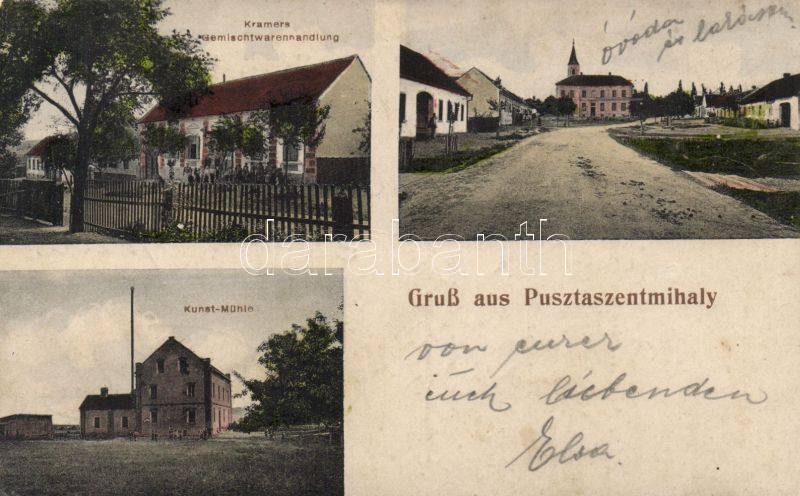 Kramers
Gemischtwarenhandlung
óvoda
és
darabanth
Kunst-Mühle
Gruß aus Pusztaszentmihaly
von eurer
euch liebenden
Elsa.